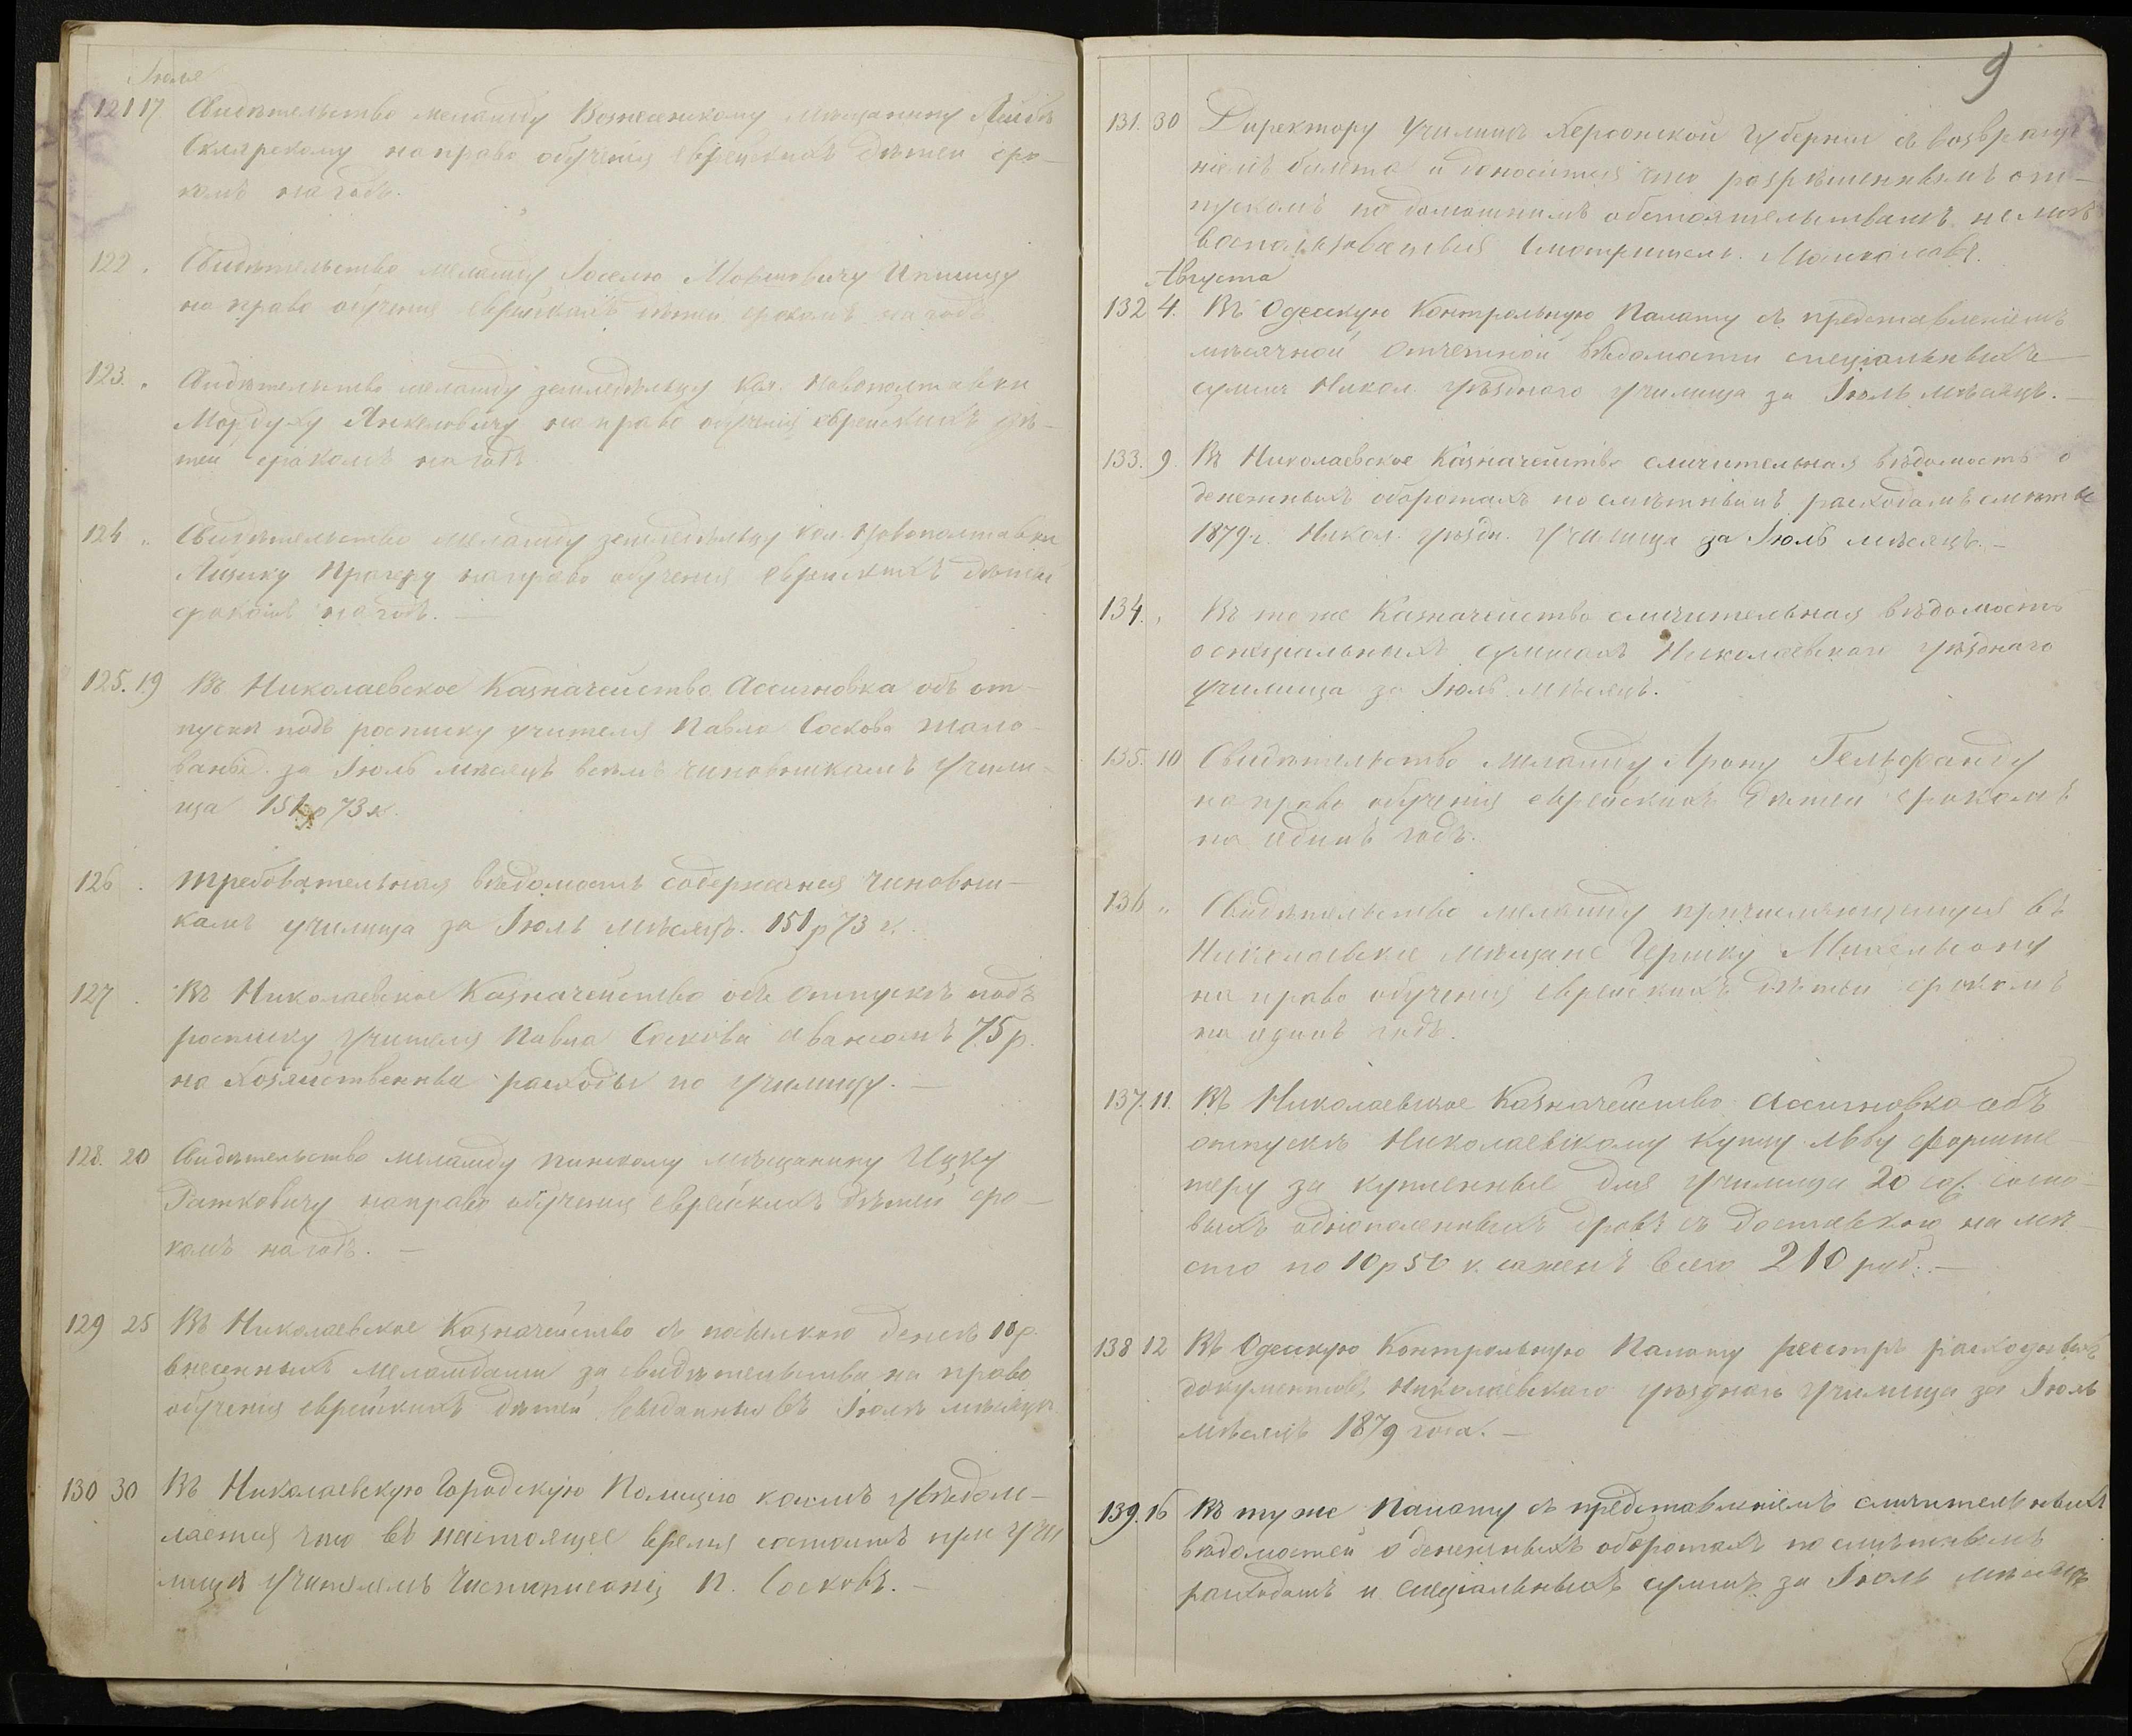 Іюля
121 17 Свидѣтельство меламду Вознесенскому мѣщанину Лейбѣ
Склярскому на право обученія еврейскихъ дѣтей сро-
комъ на годъ.
122 „ Свидѣтельство меламду Іоселю Мошковичу
на право обученія еврейскихъ дѣтей срокомъ на годъ
123. „ Свидѣтельство меламду земледѣльцу кол. Новополтавки
Мордуху Янкелевичу на право обученія еврейскихъ дѣ-
тей срокомъ на годъ
124 „ Свидѣтельство меламду земледѣльцу кол. Новополтавки
Лизеку Прагеру на право обученія еврейскихъ дѣтей
срокомъ на годъ. —
125. 19 Въ Николаевское Казначейство Ассигновка объ от-
пускѣ подъ росписку учителя Павла Соскова жало-
ванья за Іюль мѣсяцъ всѣмъ чиновникамъ Учили-
ща 151 р 73 к.
126 . Требовательная вѣдомость содержанія чиновни-
камъ училища за Іюль мѣсяцъ. 151 р 73 к.
127 . Въ Николаевское Казначейство объ отпускѣ подъ
росписку Учителя Павла Соскова авансомъ 75 р.
на хозяйственные расходы по училищу. —
128. 20 Свидѣтельство меламду Пинскому мѣщанину Ицку
Ратковичу на право обученія еврейскихъ дѣтей сро-
комъ на годъ. —
129 25 Въ Николаевское Казначейство съ посылкою денегъ 10 р.
внесенныхъ меламдами за свидѣтельства на право
обученія еврейскихъ дѣтей выданныя въ Іюлѣ мѣсяцѣ.
130 30 Въ Николаевскую Городскую Полицію коимъ увѣдом-
ляется что въ настоящее время состоитъ при учи
лищѣ учителемъ Чистописанія П. Сосковъ. —
9
131. 30 Директору Училищъ Херсонской Губерніи съ возвраще
ніемъ билета и доносится что разрѣшеннымъ от-
пускомъ по домашнимъ обстоятельствамъ не могъ
воспользоваться Смотритель.
Августа
132 4. Въ Одесскую Контрольную Палату съ представленіемъ
мѣсячной отчетной вѣдомости спеціальныхъ
суммъ Никол. уѣзднаго училища за Іюль мѣсяцъ. —
133. 9. Въ Николаевское Казначейство сличительная вѣдомость о
денежныхъ оборотахъ по смѣтнымъ расходамъ смѣты
1879 г. Никол. уѣздн. Училища за Іюль мѣсяцъ. —
134. „ Въ тоже Казначейство сличительная вѣдомость
о спеціальныхъ суммахъ Николаевскаго уѣзднаго
училища за Іюль мѣсяцъ.
135. 10 Свидѣтельство меламду Арону Гельфанду
на право обученія еврейскихъ дѣтей срокомъ
на одинъ годъ.
136 „ Свидѣтельство меламду причисляющемуся въ
Николаевскіе мѣщане Гершку
на право обученія еврейскихъ дѣтей срокомъ
на одинъ годъ.
137. 11. Въ Николаевское Казначейство Ассигновка объ
отпускѣ Николаевскому Купцу Льву Форште
теру за купленные для Училища 20 саж.
выхъ однополенныхъ дровъ съ доставкою на мѣ
сто по 10 р 50 к. сажень всего 210 руб. —
138 12 Въ Одесскую Контрольную Палату реестръ расходныхъ
документовъ Николаевскаго уѣзднаго Училища за Іюль
мѣсяцъ 1879 года. —
139. 16 Въ туже Палату съ представленіемъ сличительныхъ
вѣдомостей о денежныхъ оборотахъ по смѣтнымъ
расходамъ и спеціальныхъ суммъ за Іюль мѣсяцъ